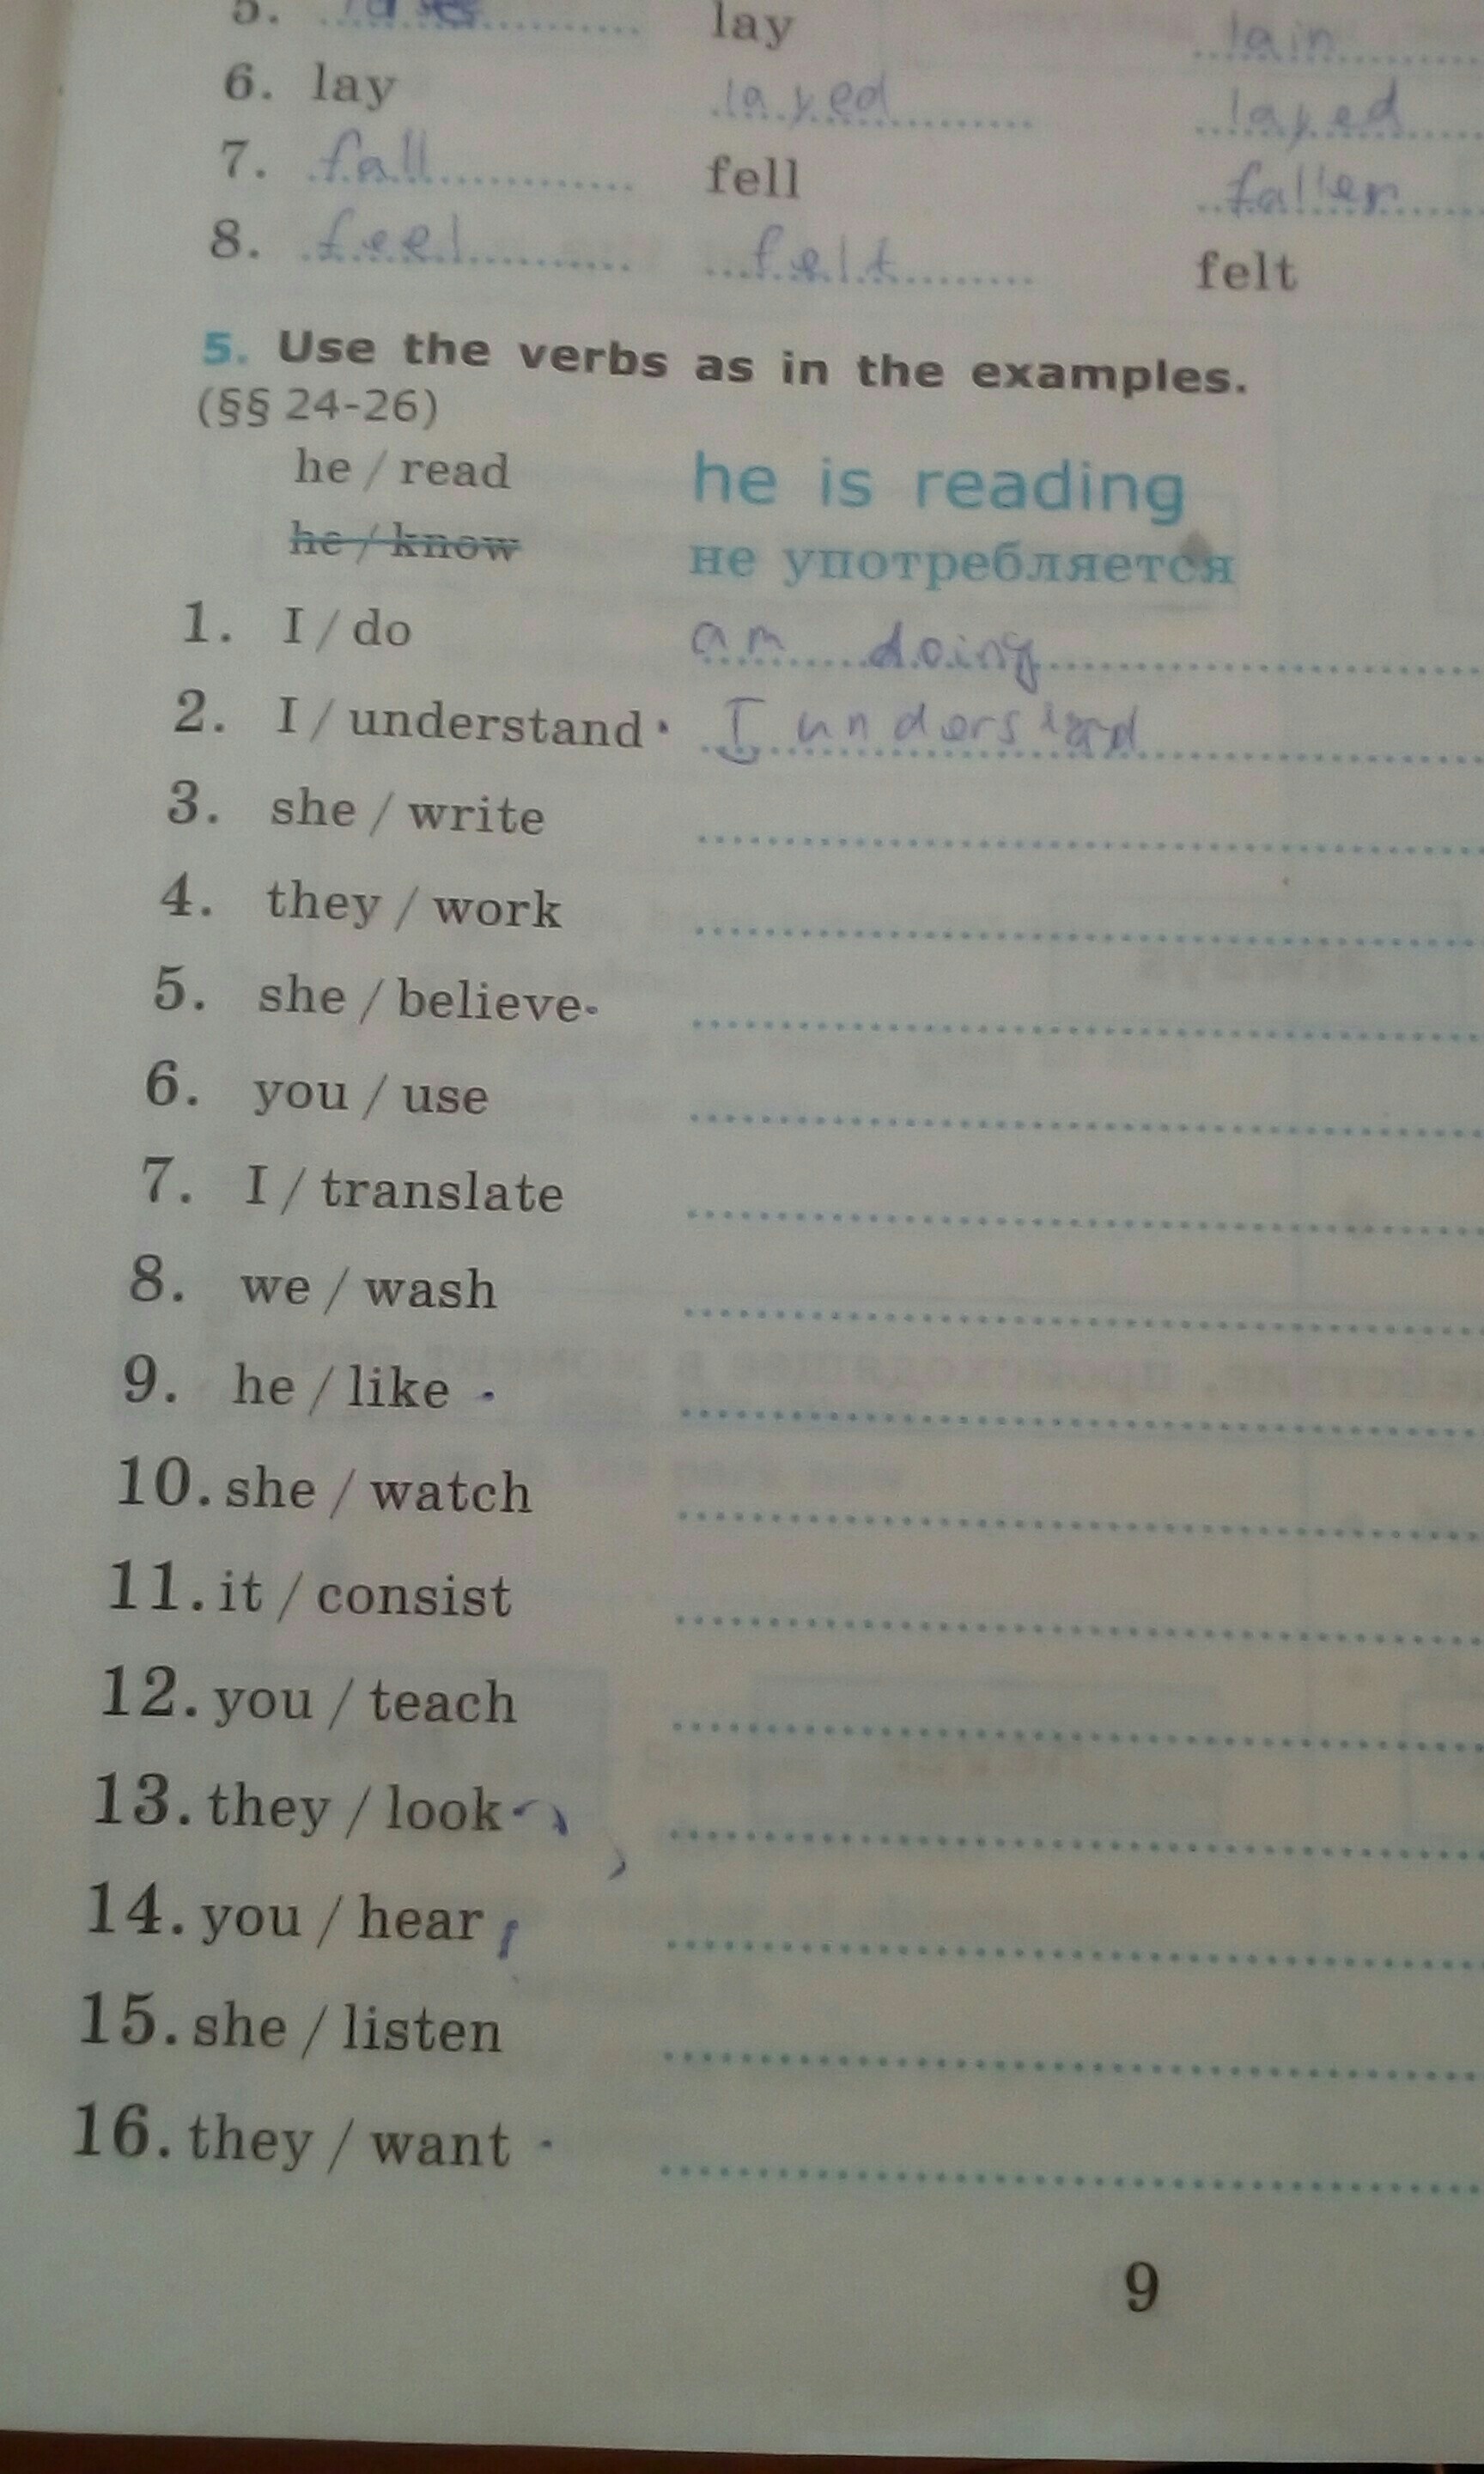 5. lay
lain
6. lay layed layed
7. fall fell fallen
8. feel felt felt
5. Use the verbs as in the examples.
(§§ 24-26)
he / read he is reading
he / know не употребляется
1. I / do am doing
2. I / understand I understand
3. she / write
4. they / work
5. she / believe
6. you / use
7. I / translate
8. we / wash
9. he / like
10. she / watch
11. it / consist
12. you / teach
13. they / look
14. you / hear
15. she / listen
16. they / want
9